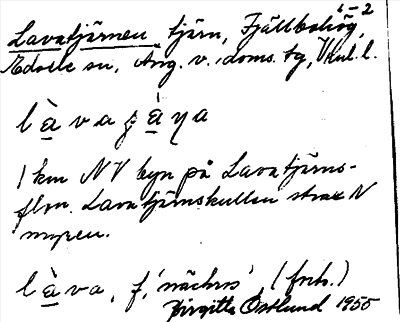 1-2
Lavatjärnen tjärn, Fjällbohög,
Edsele sn, Ång. v. doms. tg, Vnl. l.
làvazàya
1 km NV byn på Lavatjärns-
flon. Lavatjärnskullen strax N
myren.
làva, f, 'nächrs', (förh.)
Birgitta Östlund 1955